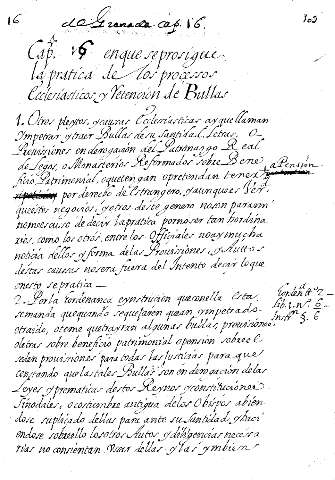 16 de Granada cap. 16. 103
Cap. 16 en que se prosigue
la pratica de los processos
Ecclesiasticos, y Retencion de Bullas
1. Otros pleytos, y causas Ecclesiasticas ay que llaman
Impetrar, y traer Bullas de su Santidad, letras, o
Provisiones en derogacion del Patronazgo Real
de Legos, o Monasterios Reformados sobre Bene
ficio Patrimonial, o que tengan o pretendan tener a Pension
por derecho de Estrangero, y aunque es Verd
que estos negocios, y otros deste genero no son para mi
nome escuso de decir la pratica por no ser tan hordina
rios, como los otros, entre los Officiales no ay mucha
noticia dellos, y forma de las Provisiones, y Auttos
destas causas no sera fuera del Intento decir lo que
en esto se pratica
2. Por la hordenanza, e ynstrucion que con ella esta
se manda que quando se quexaren que an ynpetrado
o traido, o como que traygan algunas bullas, provisiones
o letras sobre beneficio patrimonial o pension sobre el
se den provisiones para todas las justicias para que
constando que las tales Bullas son en derogacion de las
Leyes, y prematicas destos Reynos y constituciones
Sinodales, o costumbre antigua de los Obispos abien
dose suplicado dellas para ante su Santidad, y hací
endose sobre ello los otros Autos, y diligencias necesa
rias no consientan Usar dellas, y las ymbien
lib. 1. n.º 6
Instt.ⁿ §. 6